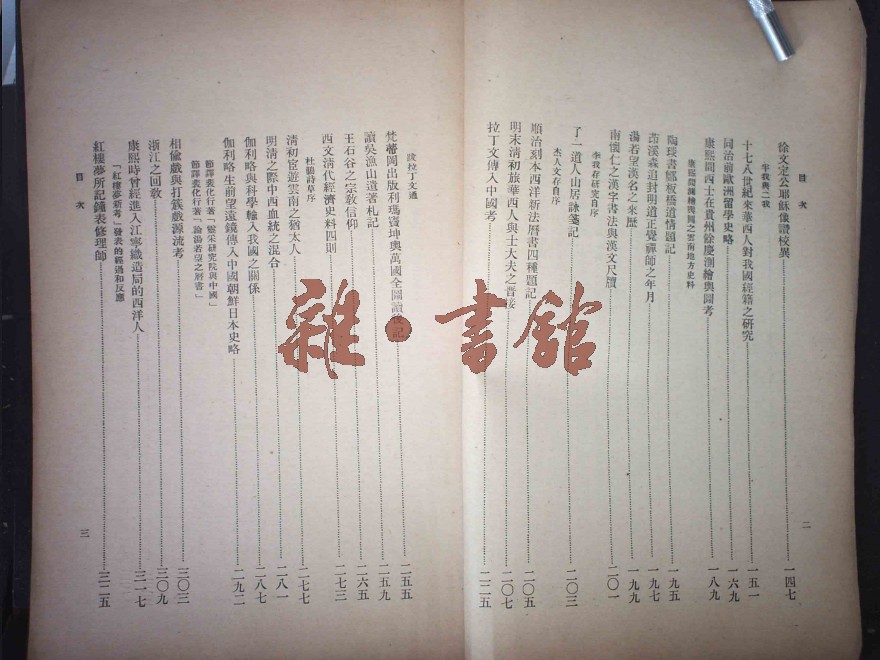 目次 二
徐文定公耶穌像讚校異 一四七
半我與二我
十七八世紀來華西人對我國經籍之研究 一五一
同治前歐洲留學史略 一六九
康熙間西士在貴州餘慶測繪輿圖考 一八九
雲南地方史料
書鄭板橋道情題記 一九五
茆溪森追封明道正覺禪師之年月 一九七
湯若望漢名之來歷 一九九
南懷仁之漢字書法與漢文尺牘 二〇一
李我存研究自序
了一道人山居詠箋記 二〇三
杰人文存自序
順治刻本西洋新法曆書四種題記 二〇五
明末清初旅華西人與士大夫之晉接 二〇七
拉丁文傳入中國考
跋拉丁文通
梵蒂岡出版利瑪竇坤輿萬國全圖讀後記 二五五
讀吳漁山遺著札記 二五九
王石谷之宗敎信仰 二六五
西文清代經濟史料四則 二七三
杜聽詩草序
清初宦遊雲南之猶太人 二七七
明清之際中西血統之混合 二八一
伽利略與科學輸入我國之關係 二八七
伽利略生前望遠鏡傳入中國朝鮮日本史略 二九二
節譯裴化行著「靈采研究院與中國」
節譯裴化行著「論湯若望之曆書」
相偸戲與打簇戲源流考 三〇三
浙江之回敎 三〇九
康熙時曾經進入江寧織造局的西洋人 三一七
「紅樓夢新考」發表的經過和反應
紅樓夢所記鐘表修理師 三二五
目次 三
雜·書館